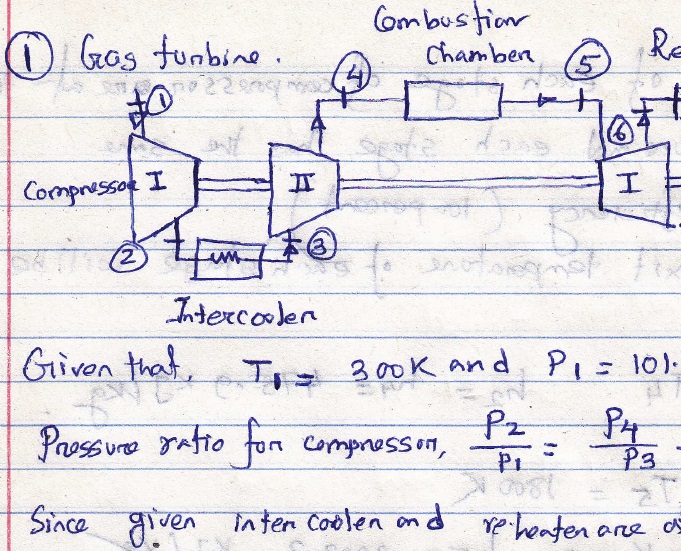 ① Gas turbine.
Combustion
Chamber
Re
① ④ ⑤ ⑥
Compressor I II I
② ③
Intercooler
Given that, T1 = 300K and P1 = 101.
Pressure ratio for compressor, P2/P1 = P4/P3
Since given inter cooler and re-heater are